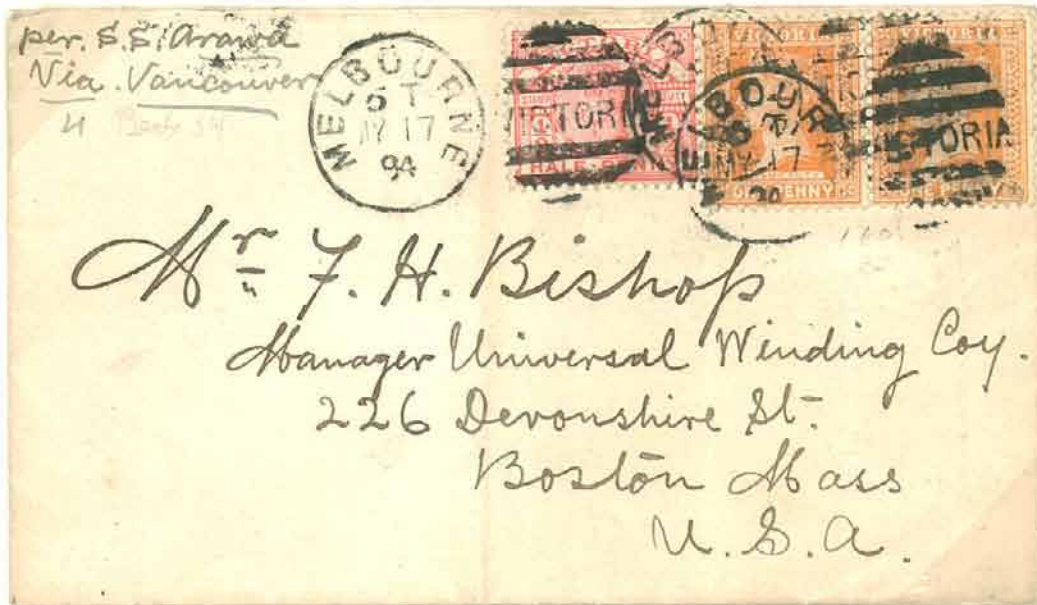 per. S.S. Arawa
Via. Vancouver
MELBOURNE
MY 17
94
VICTORIA
HALF-PENNY
MELBOURNE
MY 17
VICTORIA
ONE PENNY
VICTORIA
ONE PENNY
Mr. F. H. Bishop
Manager Universal Winding Coy.
226 Devonshire St.
Boston Mass
U. S. A.